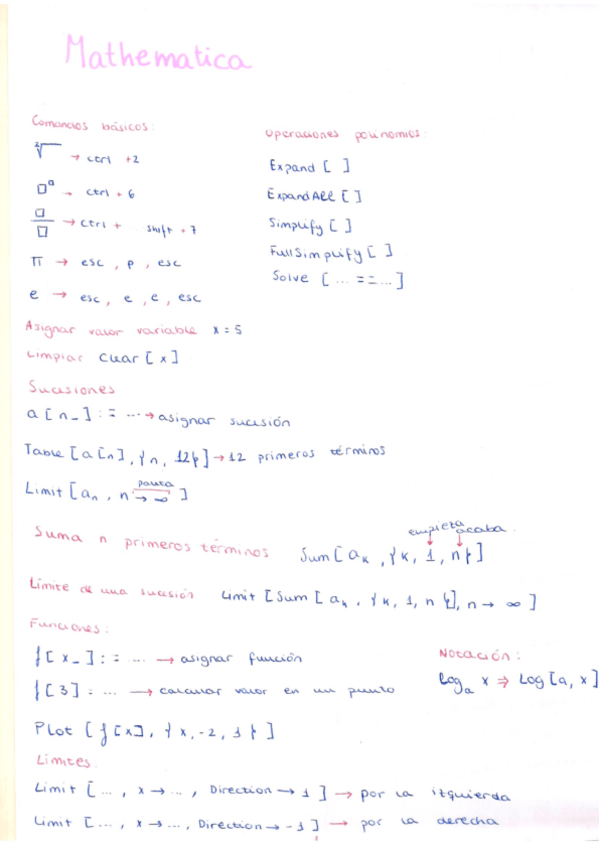 Mathematica
Comandos básicos:
²√ → ctrl +2
□^□ → ctrl + 6
□/□ → ctrl + shift + 7
π → esc, p, esc
e → esc, e, e, esc
Operaciones polinomios:
Expand [ ]
ExpandAll [ ]
Simplify [ ]
FullSimplify [ ]
Solve [ ... == ... ]
Asignar valor variable x = 5
Limpiar Clear [x]
Sucesiones
a [n_] := ... → asignar sucesión
Table [a[n], {n, 12}] → 12 primeros términos
pauta
Limit [aₙ, n → ∞ ]
empieza acaba
Suma n primeros términos Sum [aₖ, {k, 1, n}]
Límite de una sucesión Limit [Sum [aₖ, {k, 1, n}], n → ∞ ]
Funciones:
f [x_] := ... → asignar función
f [3] = ... → calcular valor en un punto
Plot [f[x], {x, -2, 1}]
Notación:
logₐ x ⇒ Log[a, x]
Límites
Limit [..., x → ..., Direction → 1 ] → por la izquierda
Limit [..., x → ..., Direction → -1 ] → por la derecha